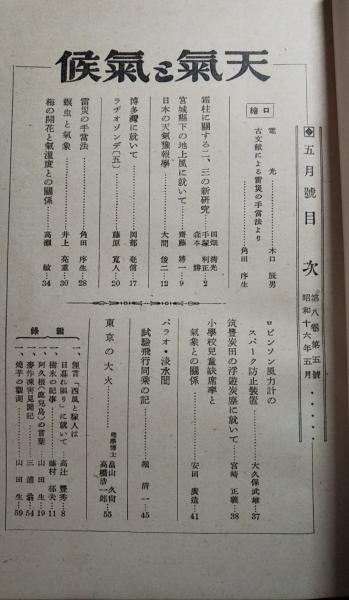 天氣と氣候
五月號目次
第八卷第五號
昭和十六年五月
口繪
電光……木口辰男
古文献による雷災の手當法より……角田序生
霜柱に關する二、三の新研究……田畑清光 手塚利正 森本勝…2
宮城縣下の地上風に就いて……齋藤將一…9
日本の天氣豫報學……大間俊二…12
博多灣に就いて……岡部竜信…17
ラヂオゾンデ〔五〕……藤原寬人…20
雷災の手當法……角田序生…28
蝦虫と氣象……井上亮重…30
梅の開花と氣溫度との關係……高瀨敏…34
ロビンソン風力計のスパーク防止裝置……大久保武雄…37
筑豐炭田の浮遊炭塵に就いて……宮崎正義…38
小學校兒童缺席率と氣象との關係……安田廣造…41
パラオ・淡水間試驗飛行同乘の記……堀清一…45
東京の大火……理學博士畠山久尙 高橋浩一郎…55
雜錄
一、俚言「西風と嫁人は日暮れ限り」に就いて…高辻豐秀…8
一、樹氷の記事……藤村郁夫…11
一、阿久根(鹿兒島)の言葉……山田生…19
一、麥作凍害見聞記……三浦翁…54
一、燒芋の觀測……山田生…59